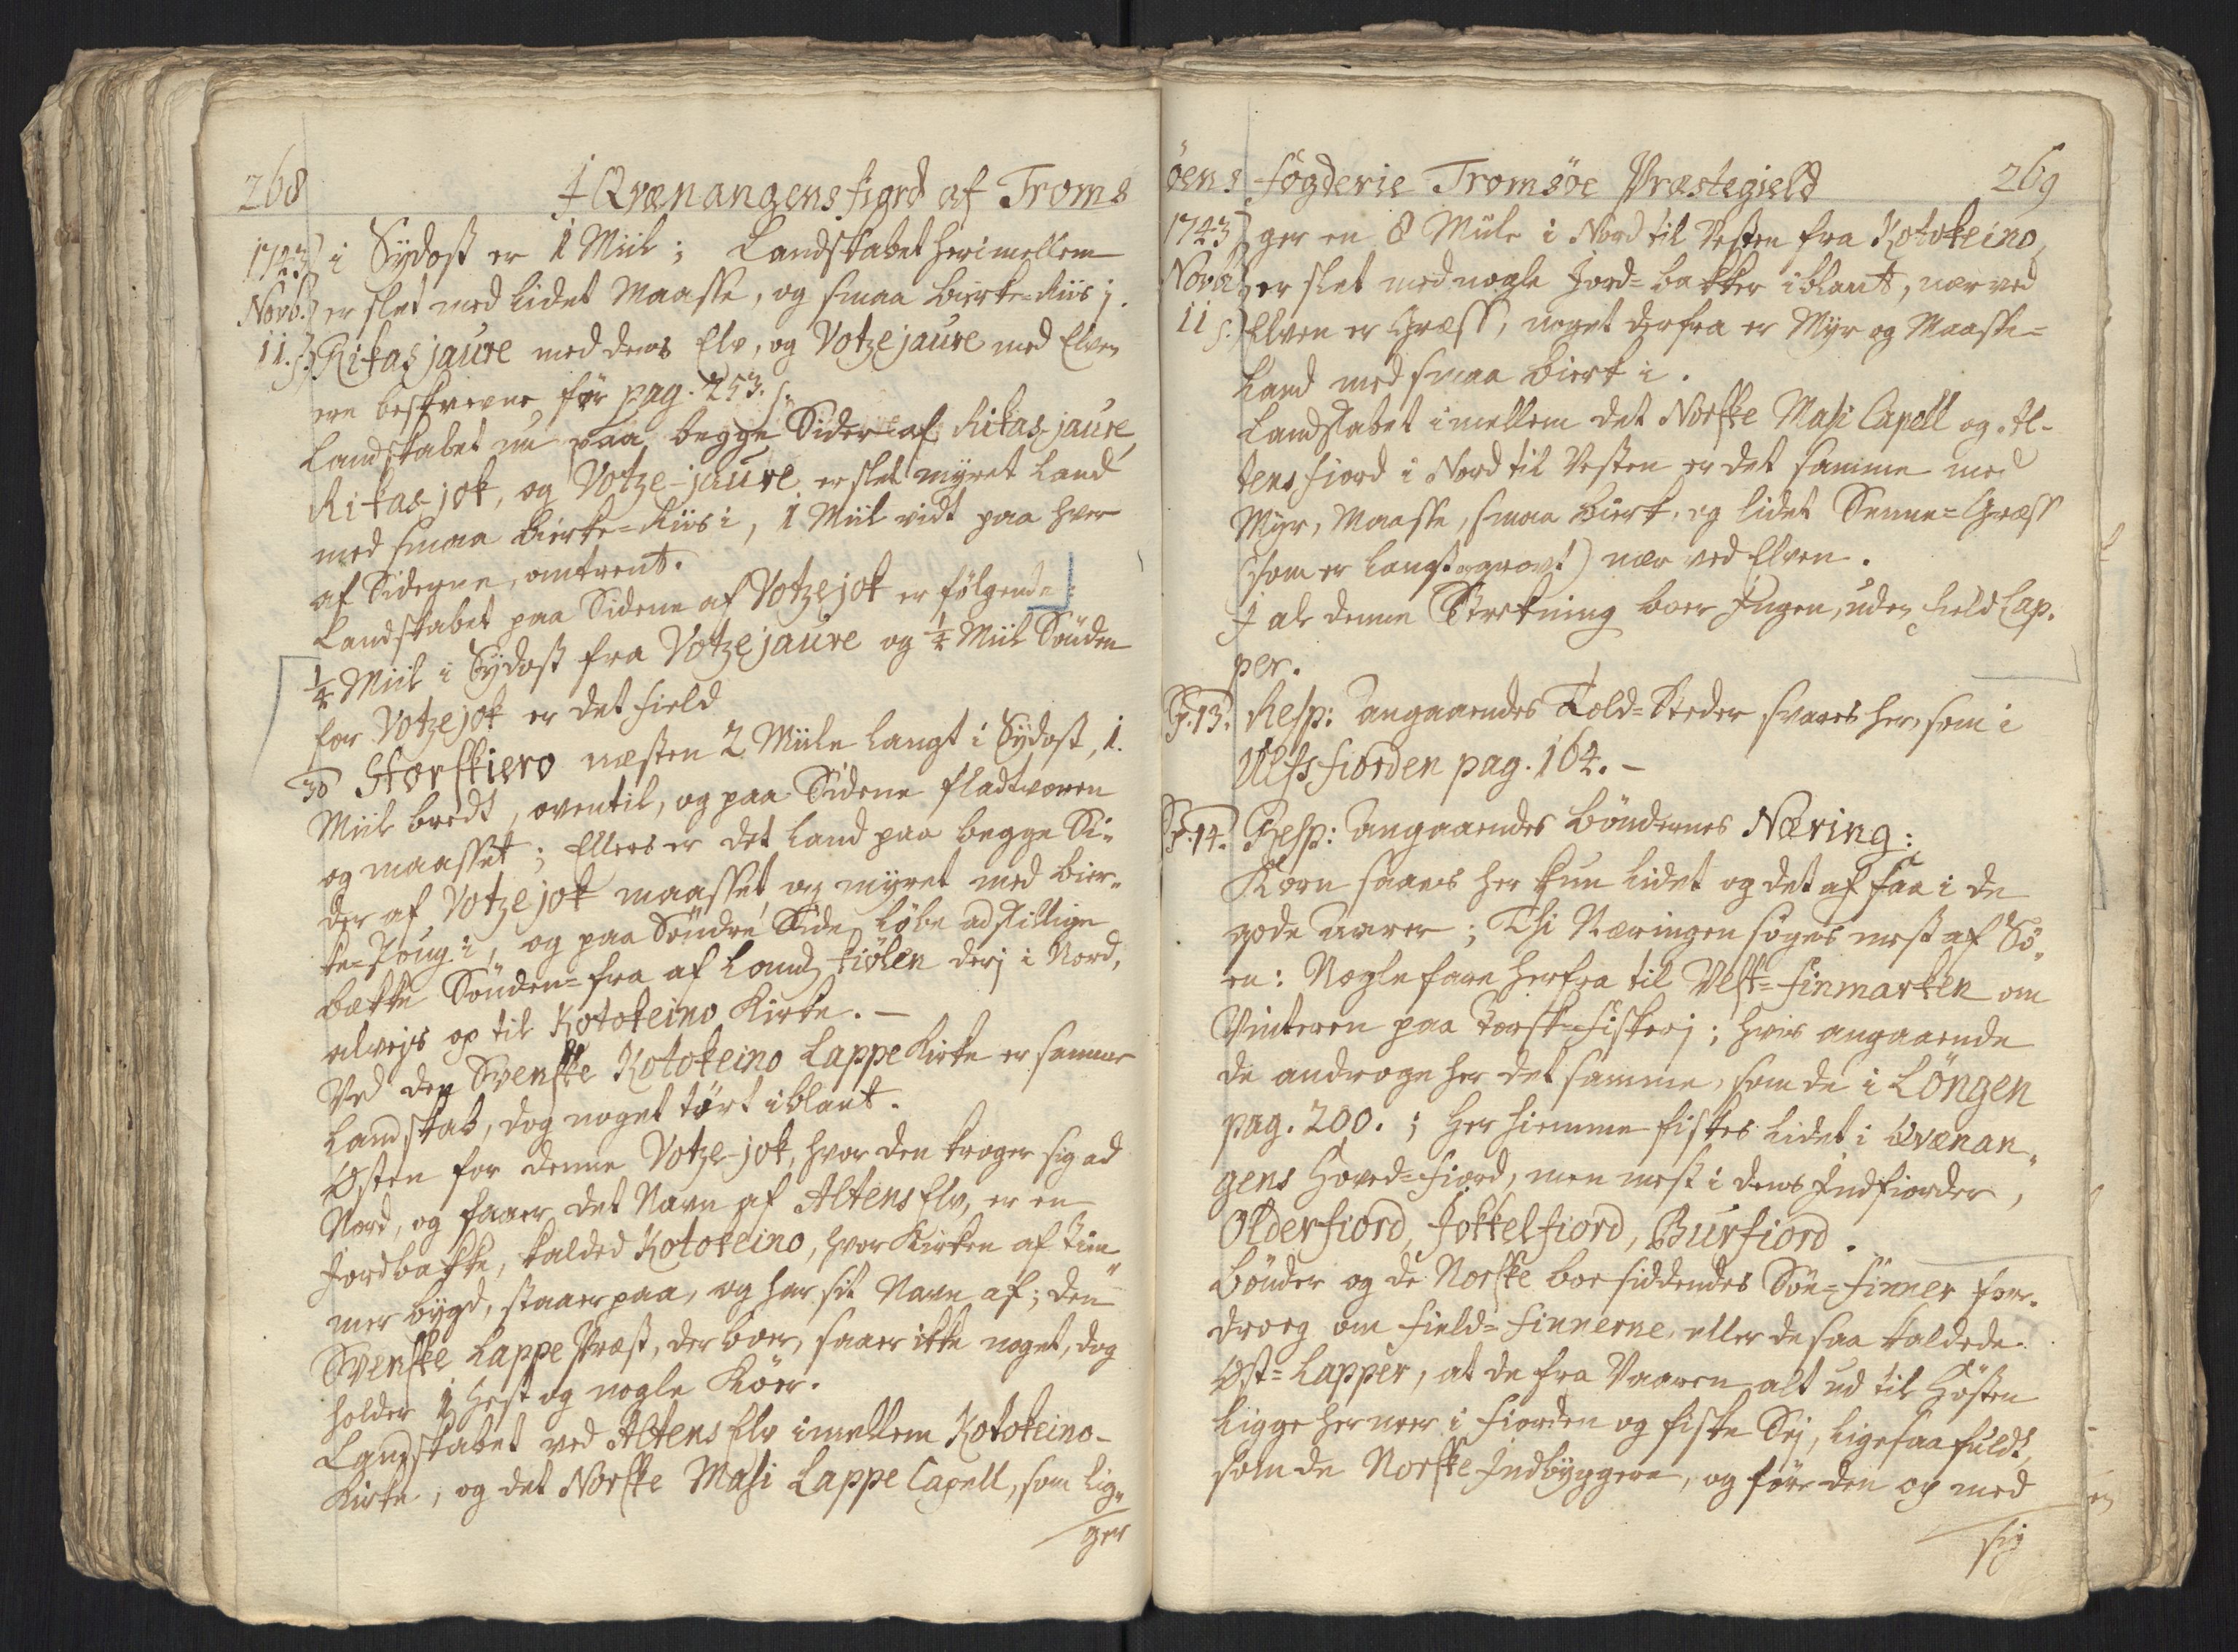 268
I Qvænangens fiord af Troms
1743 i Sydost er 1 Miil; Landskabet herimellem
Novb. er slet med lidet Maasse, og smaa birke-Riis j.
11. s. Ritasjaure med dens Elv, og Votzejaure med Elven
ere beskrevne før pag. 253. s.
Landskabet nu paa begge Sider af Ritasjaure,
Ritas-jok, og Votze-jaure er slet myret Land
med smaa birke-Riis i, 1 Miil vidt paa hver
af Siderne, omtrent.
Landskabet paa Sidene af Votzejok er følgende
1/4 Miil i Sydost fra Votzejaure og 1/4 Miil Sønden
for Votzejok er det field
30 Storskiero næsten 2 Miile langt i Sydost, 1.
Miil bredt, oventil, og paa Sidene fladtvoren
og maasset; Ellers er det Land paa begge Si-
der af Votzejok maasset og myret med bir-
ke-Skoug i, og paa Søndre Side løbe adskillige
bække Sønden-fra af Lands kiølen derj i Nord,
alvejs op til Kotokeino Kirke. —
Ved den Svenske Kotokeino Lappe Kirke er samme
Landskab, dog noget tørt iblant.
Østen for denne Votze-jok, hvor den krøger sig ad
Nord, og faaer det Navn af Altens Elv, er en
Jordbakke, kalded Kotokeino, hvor Kirken af Tim-
mer bygd, staaer paa, og har sit Navn af; den
Svenske Lappe Præst, der boer, saaer ikke noget, dog
holder 1 Hest og nogle Kiør.
Landskabet ved Altens Elv imellem Kotokeino-
Kirke, og det Norske Masi Lappe Capell, som lig-
ger
øens fögderie Tromsöe Præstegield
269
1743 ger en 8 Miile i Nord til Vesten fra Kotokeino
Novb. er slet med nogle Jord-bakker iblant, nær ved
11 s. Elven er Græss, noget derfra er Myr og Maasse-
Land med smaa birk i.
Landskabet imellem det Norske Masi Capell og Al-
tens fiord i Nord til Vesten er det samme med
Myr, Maasse, smaa birk, og lidet Senne-Græss
(som er langt og grovt) nær ved Elven.
I al denne Strekning boer Ingen, uden field Lap-
per.
Sp. 13. Resp: Angaaendes Told-Steder svares her, som i
Ulfsfiorden pag. 164. —
Sp. 14. Resp: Angaaendes bøndernes Næring:
Korn saaes her kun lidet og det af faa i de
gode Aarer; Thi Næringen søges mest af Sö-
en: Nogle fare herfra til Vest-Finmarken om
Vinteren paa Torsk-fiskerj; hvis angaaende
de androge her det samme, som de i Löngen
pag. 200.; Her hiemme fiskes lidet i Qvænan-
gens Hoved-fiord, men mest i dens Indfiorder,
Olderfiord, Jokkelfiord, Burfiord.
Bønder og de Norske boesiddendes Söe-Finner for-
drog om Field-Finnerne, eller de saa kaldede
Øst-Lapper, at de fra Vaaren alt ud til Høsten
ligge her neer i fiorden og fiske Sej, ligesaa fuldt,
som de Norske Indbyggere, og føre den op med
sig